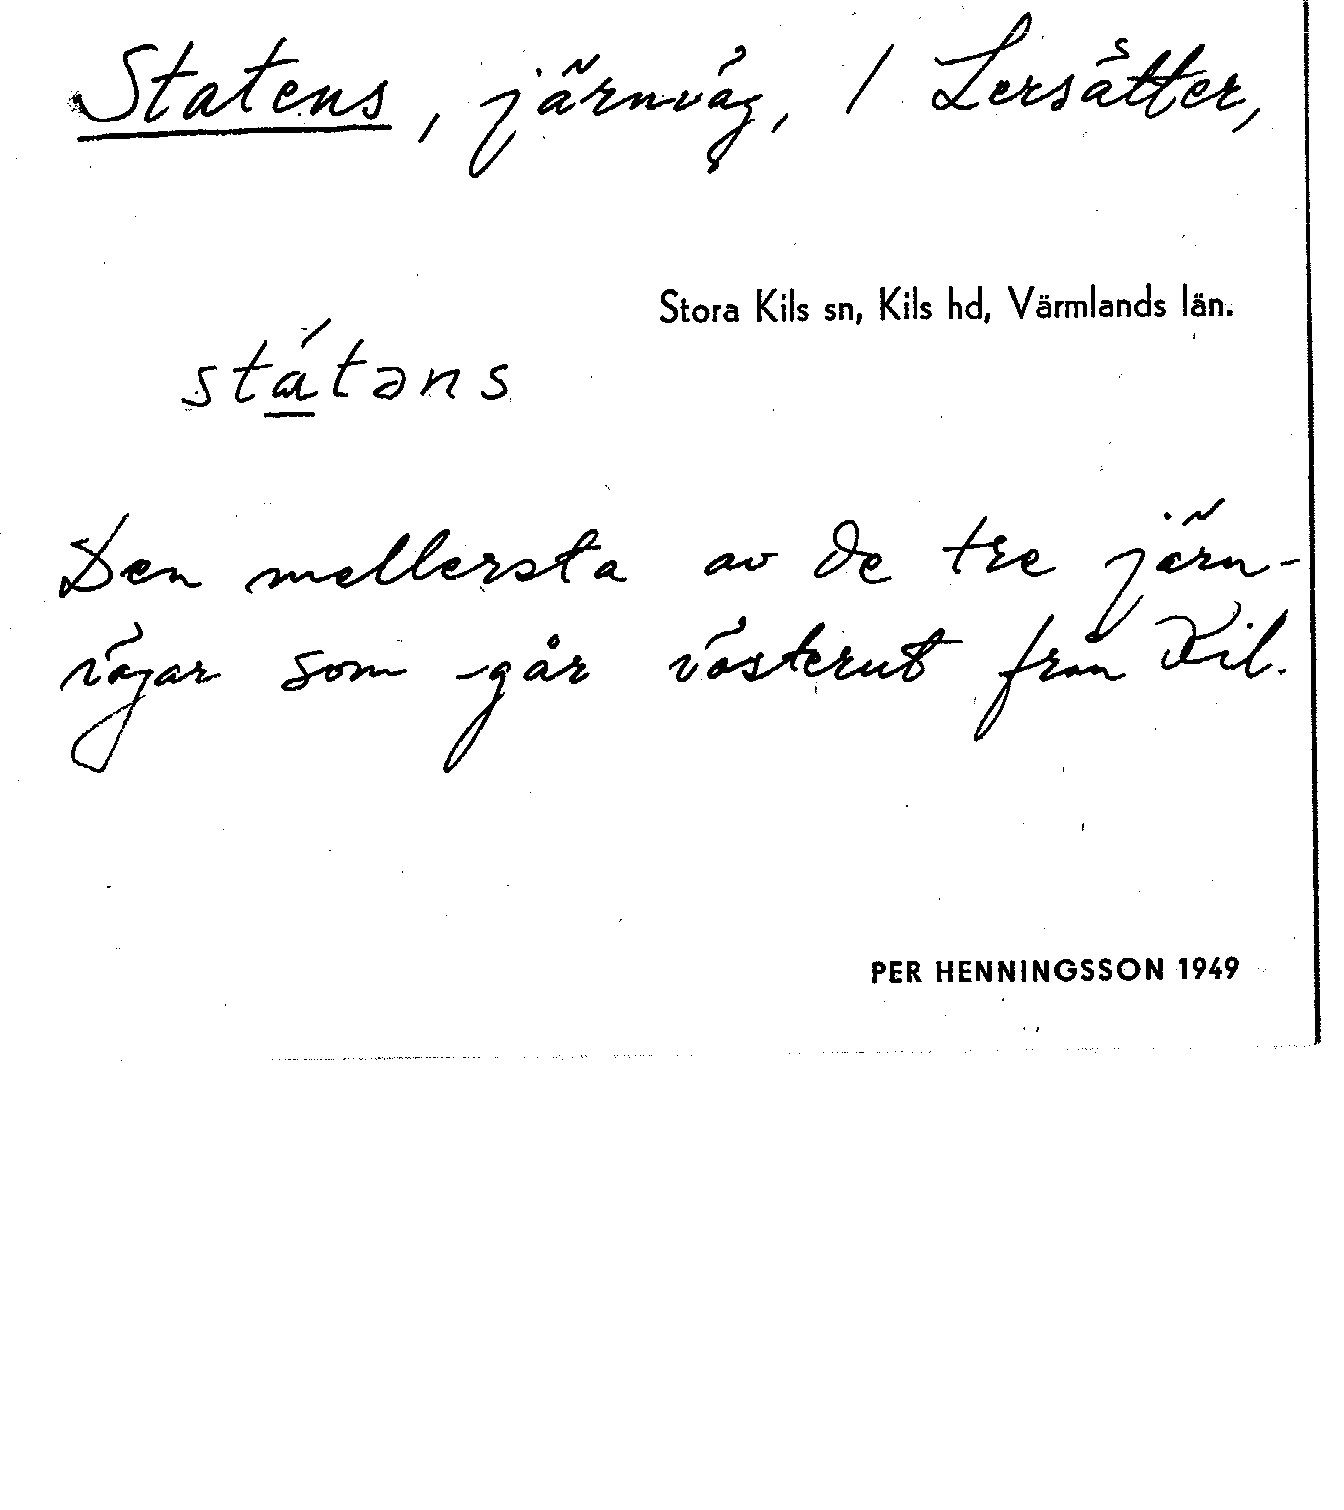 Statens, järnväg, / Lersätter,
Stora Kils sn, Kils hd, Värmlands län.
státəns
Den mellersta av de tre järn-
vägar som går västerut från Kil.
PER HENNINGSSON 1949